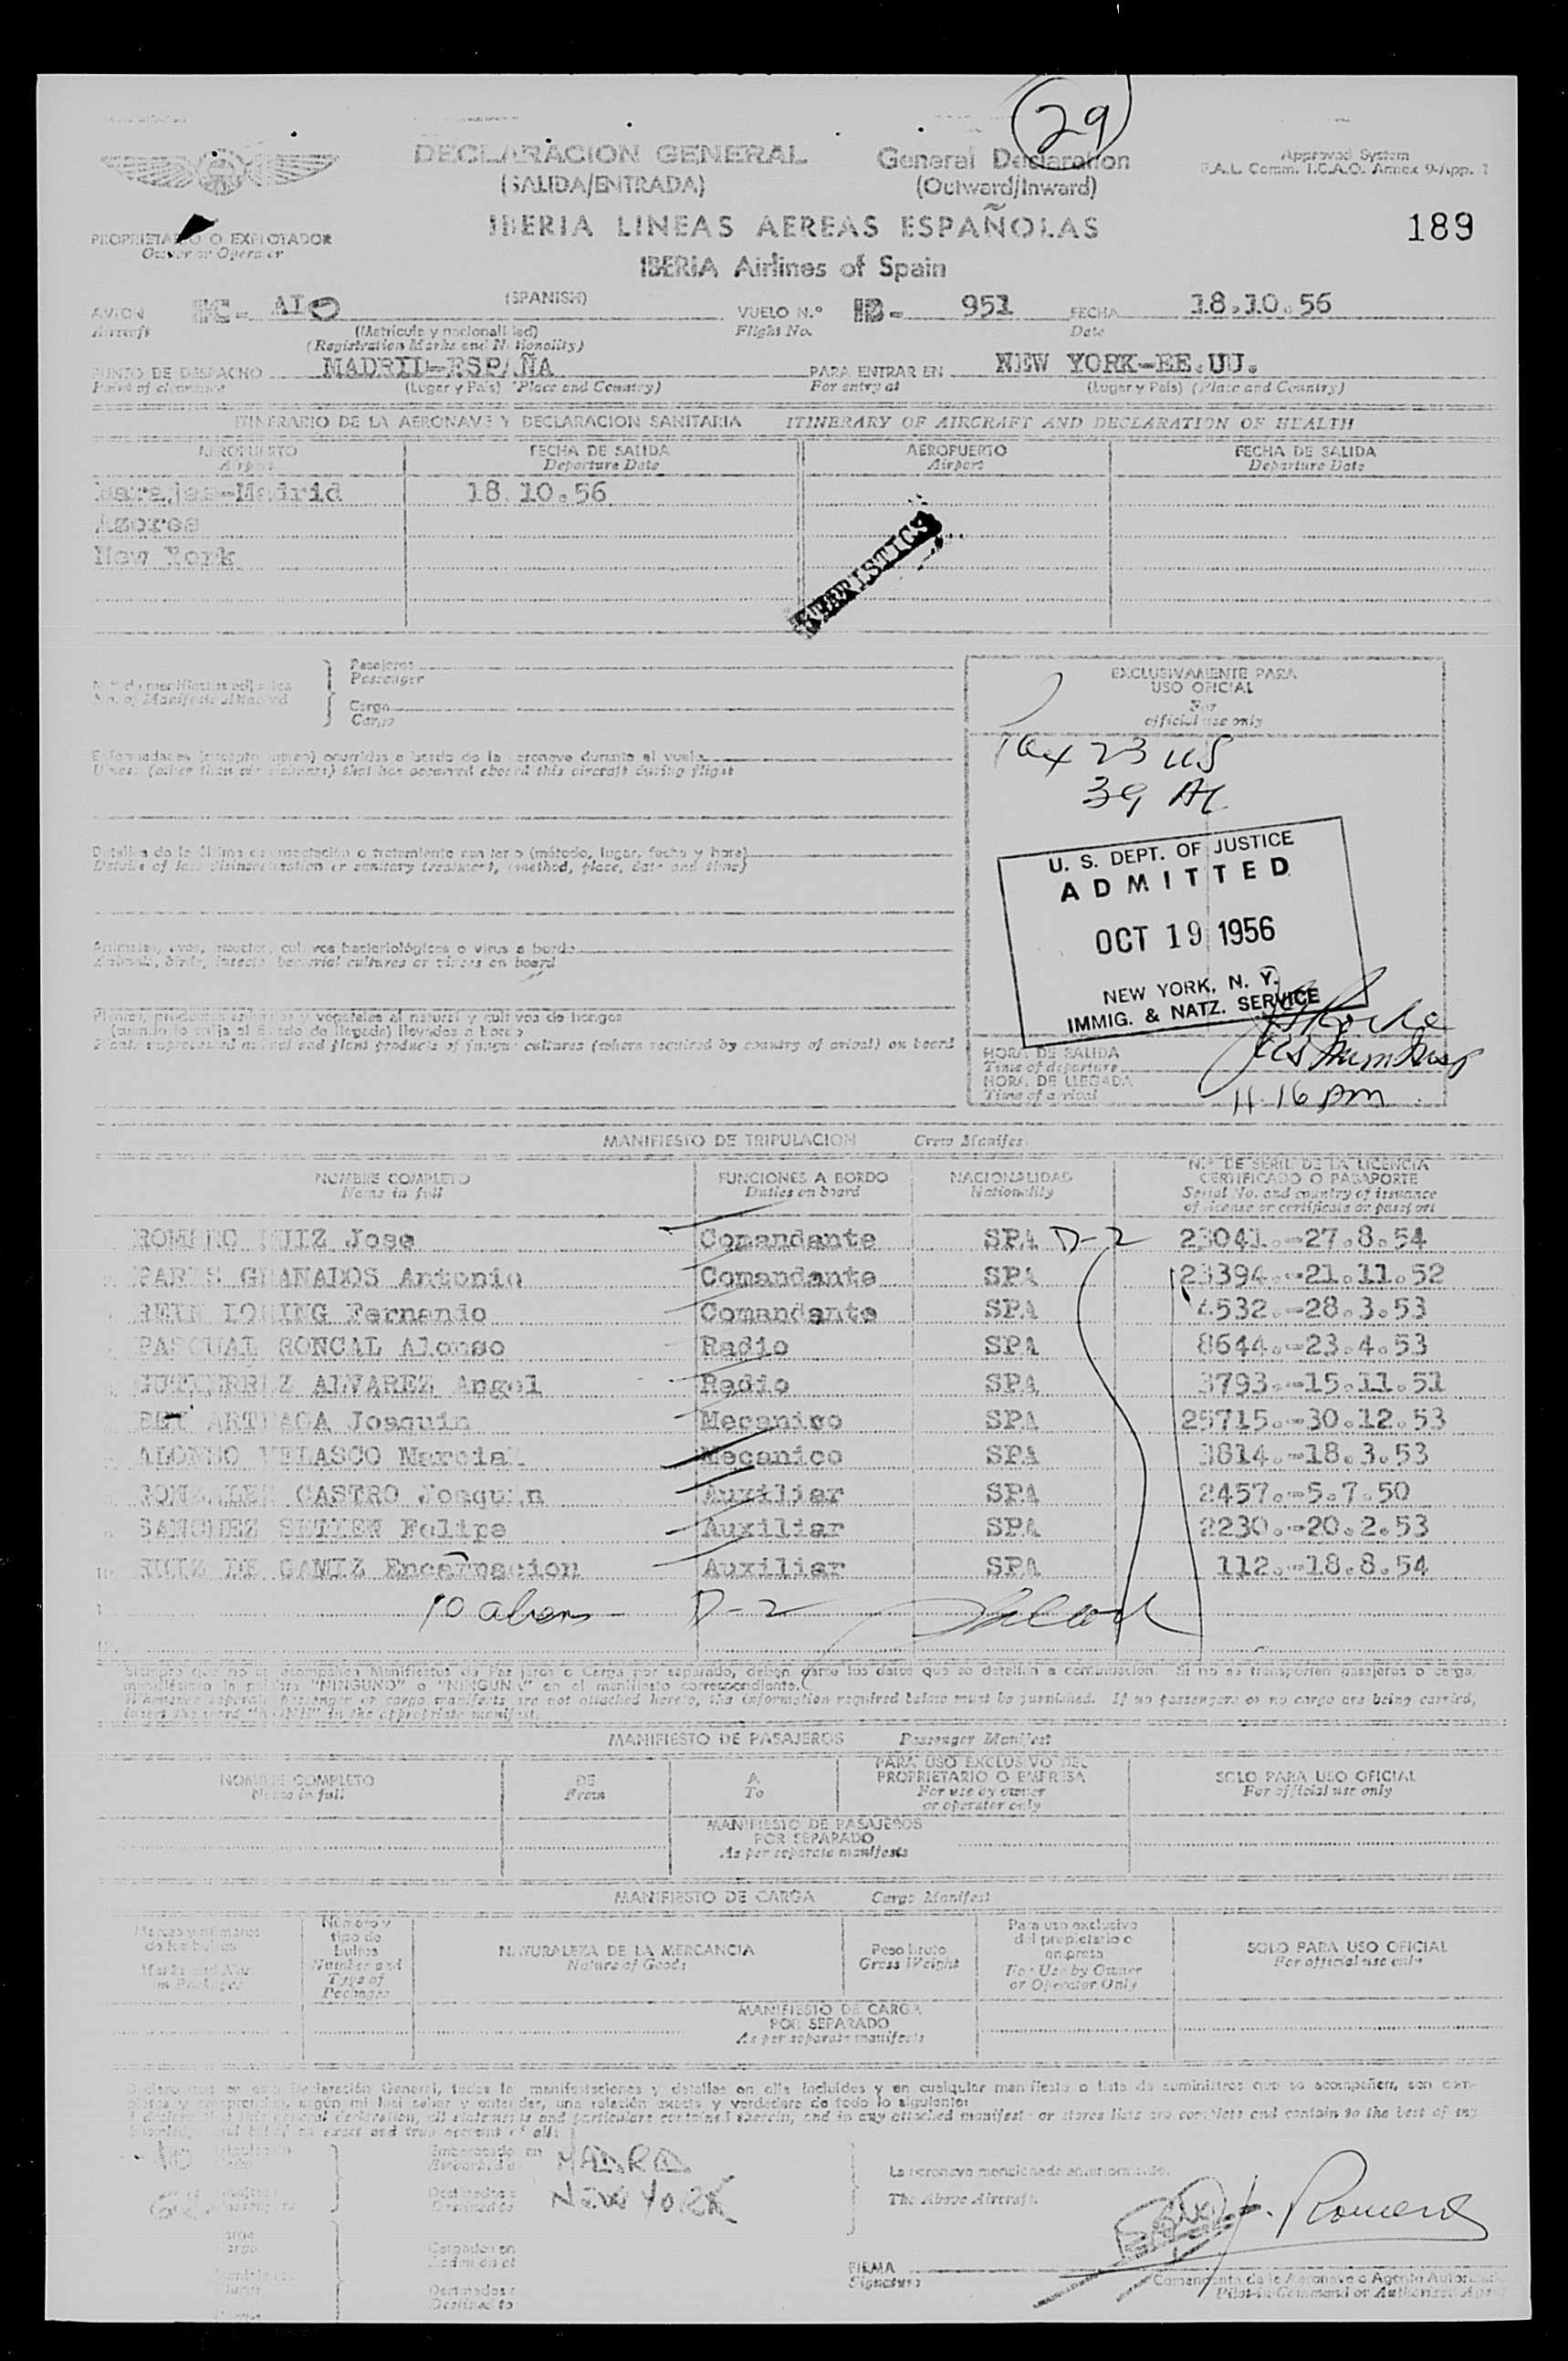 29
DECLARACION GENERAL General Declaration
(SALIDA/ENTRADA) (Outward/Inward)
Approved System
F.A.L. Comm. I.C.A.O. Annex 9-App. 1
IBERIA LINEAS AEREAS ESPAÑOLAS
189
PROPIETARIO O EXPLOTADOR
Owner or Operator
IBERIA Airlines of Spain
AVION EC- AIO (SPANISH) VUELO N.º IB- 951 FECHA 18.10.56
Aircraft (Matrícula y nacionalidad) Flight No. Date
(Registration Marks and Nationality)
PUNTO DE DESPACHO MADRID-ESPAÑA PARA ENTRAR EN NEW YORK-EE.UU.
Point of clearance (Lugar y País) (Place and Country) For entry at (Lugar y País) (Place and Country)
ITINERARIO DE LA AERONAVE Y DECLARACION SANITARIA ITINERARY OF AIRCRAFT AND DECLARATION OF HEALTH
AEROPUERTO FECHA DE SALIDA AEROPUERTO FECHA DE SALIDA
Airport Departure Date Airport Departure Date
Barajas-Madrid 18.10.56
Azores
New York
STATISTICS
Pasajeros
Passenger
No. of Manifests attached
Carga
Cargo
EXCLUSIVAMENTE PARA
USO OFICIAL
For
official use only
Enfermedades (excepto mareo) ocurridas a bordo de la aeronave durante el vuelo
Illness (other than air sickness) that has occurred aboard this aircraft during flight
23 US
39 Al
Detalles de la última desinsectación o tratamiento sanitario (método, lugar, fecha y hora)
Details of last disinsectization or sanitary treatment, (method, place, date and time)
U. S. DEPT. OF JUSTICE
ADMITTED
OCT 19 1956
NEW YORK, N. Y.
IMMIG. & NATZ. SERVICE
Animales, aves, insectos, cultivos bacteriológicos o virus a bordo
Animals, birds, insects, bacterial cultures or viruses on board
(cuando lo exija el Estado de llegada) llevados a bordo
HORA DE SALIDA
Time of departure
HORA DE LLEGADA
Time of arrival 11.16 pm
MANIFIESTO DE TRIPULACION Crew Manifest
NOMBRE COMPLETO FUNCIONES A BORDO NACIONALIDAD N.º DE SERIE DE LA LICENCIA
Name in full Duties on board Nationality CERTIFICADO O PASAPORTE
Serial No. and country of issuance
of license or certificate or passport
ROMERO RUIZ Jose Comandante SPA D-2 23041.-27.8.54
PARES GRANADOS Antonio Comandante SPA 23394.-21.11.52
REIN LORING Fernando Comandante SPA 4532.-28.3.53
PASCUAL RONCAL Alonso Radio SPA 8644.-23.4.53
GUTIERREZ ALVAREZ Angel Radio SPA 3793.-15.11.51
REY ARTEAGA Joaquin Mecanico SPA 25715.-30.12.53
ALONSO VELASCO Marcial Mecanico SPA 3814.-18.3.53
GONZALEZ CASTRO Joaquin Auxiliar SPA 2457.-5.7.50
SANCHEZ SETIEN Felipe Auxiliar SPA 2230.-20.2.53
10 RUIZ DE GAMIZ Encarnacion Auxiliar SPA 112.-18.8.54
10 aliens D-2
Siempre que no se acompañen Manifiestos de Pasajeros o Carga por separado, deben darse los datos que se detallan a continuación. Si no se transporten pasajeros o carga,
manifiéstese la palabra "NINGUNO" o "NINGUNA" en el manifiesto correspondiente.
Whenever separate passenger or cargo manifests are not attached hereto, the information required below must be furnished. If no passengers or no cargo are being carried,
insert the word "NONE" in the appropriate manifest.
MANIFIESTO DE PASAJEROS Passenger Manifest
NOMBRE COMPLETO DE A PARA USO EXCLUSIVO DEL SOLO PARA USO OFICIAL
Name in full From To PROPRIETARIO O EMPRESA For official use only
For use by owner
or operator only
MANIFIESTO DE PASAJEROS
POR SEPARADO
As per separate manifests
MANIFIESTO DE CARGA Cargo Manifest
Marcas y números
de los bultos
Número y
tipo de
bultos
Number and
Type of
Packages
NATURALEZA DE LA MERCANCIA
Nature of Goods
Peso bruto
Gross Weight
Para uso exclusivo
del propietario o
empresa
For Use by Owner
or Operator Only
SOLO PARA USO OFICIAL
For official use only
MANIFIESTO DE CARGA
POR SEPARADO
As per separate manifests
Declaro que en esta Declaración General, todas las manifestaciones y detalles en ella incluídos y en cualquier manifiesto o lista de suministros que se acompañen, son com-
pletos y comprenden, según mi leal saber y entender, una relación exacta y verdadera de todo lo siguiente:
I declare that this general declaration, all statements and particulars contained therein, and in any attached manifest or stores lists are complete and contain to the best of my
knowledge and belief an exact and true account of all:
10
Embarcado en MADRID
Destinados a NEW YORK
Destined to
La aeronave mencionada anteriormente.
The Above Aircraft.
J. Romero
Cargo
Cargados en
Destinados a
Destined to
FIRMA
Signature
Comandante de la Aeronave o Agente Autorizado
Pilot-in-Command or Authorised Agent